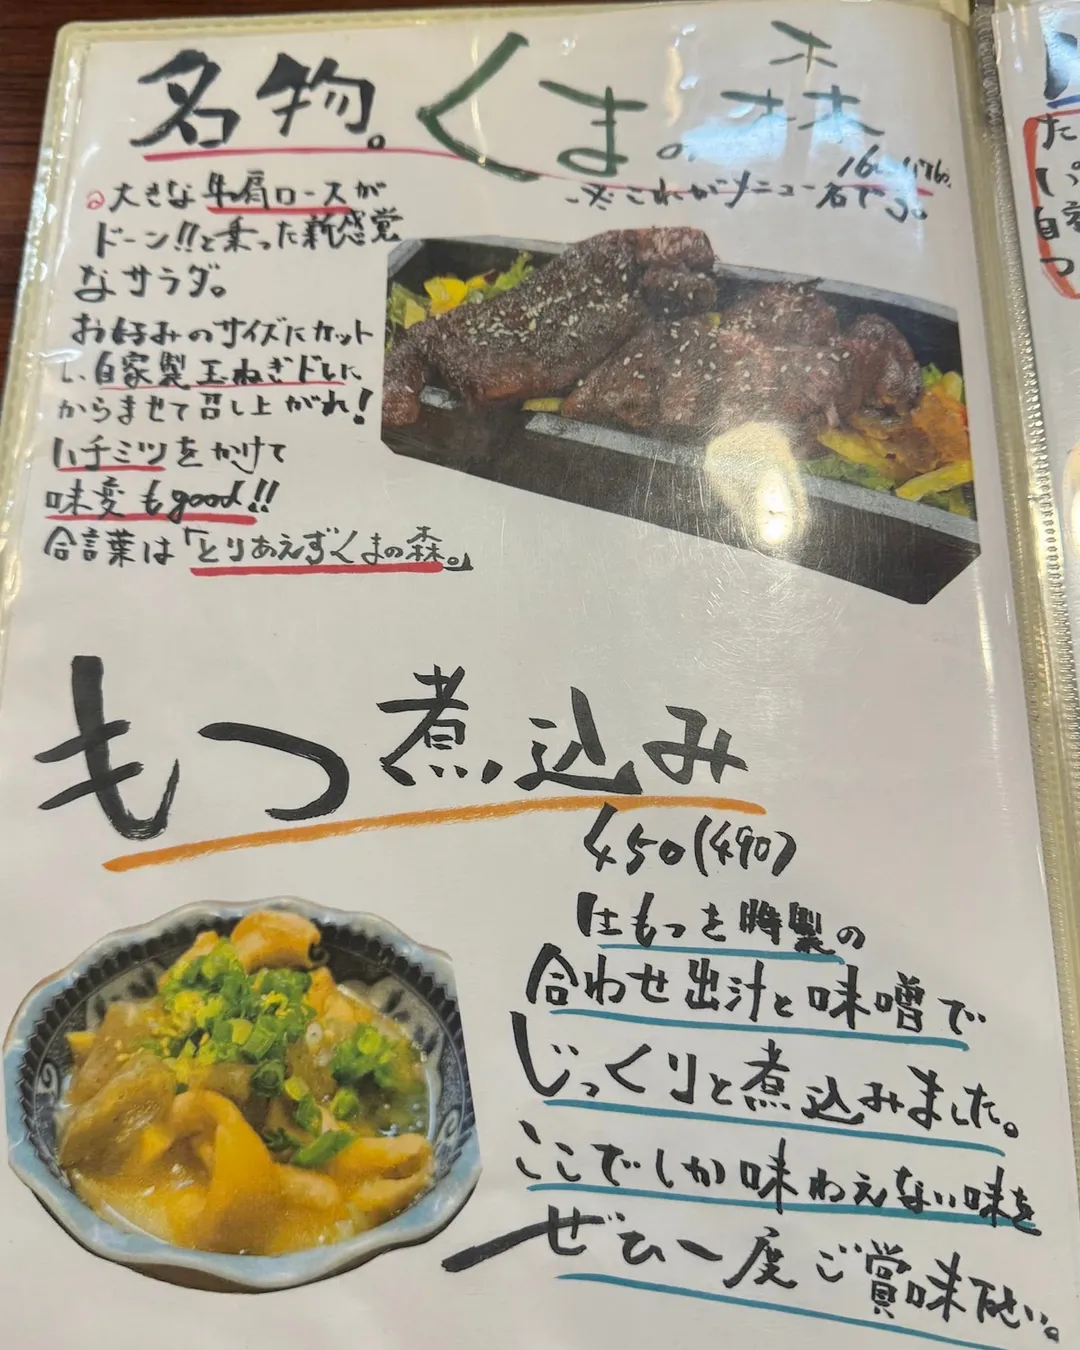 名物。くまの森
1600(1760)
※これがメニュー名です。
大きな牛肩ロースが
ドーン!!と乗った新感覚
なサラダ。
お好みのサイズにカット
し、自家製玉ねぎドレに
からませて召し上がれ!
ハチミツをかけて
味変もgood!!
合言葉は「とりあえずくまの森。」
もつ煮込み
450(490)
はもつを特製の
合わせ出汁と味噌で
じっくりと煮込みました。
ここでしか味わえない味を
ぜひ一度ご賞味下さい。
た
い
自
つ